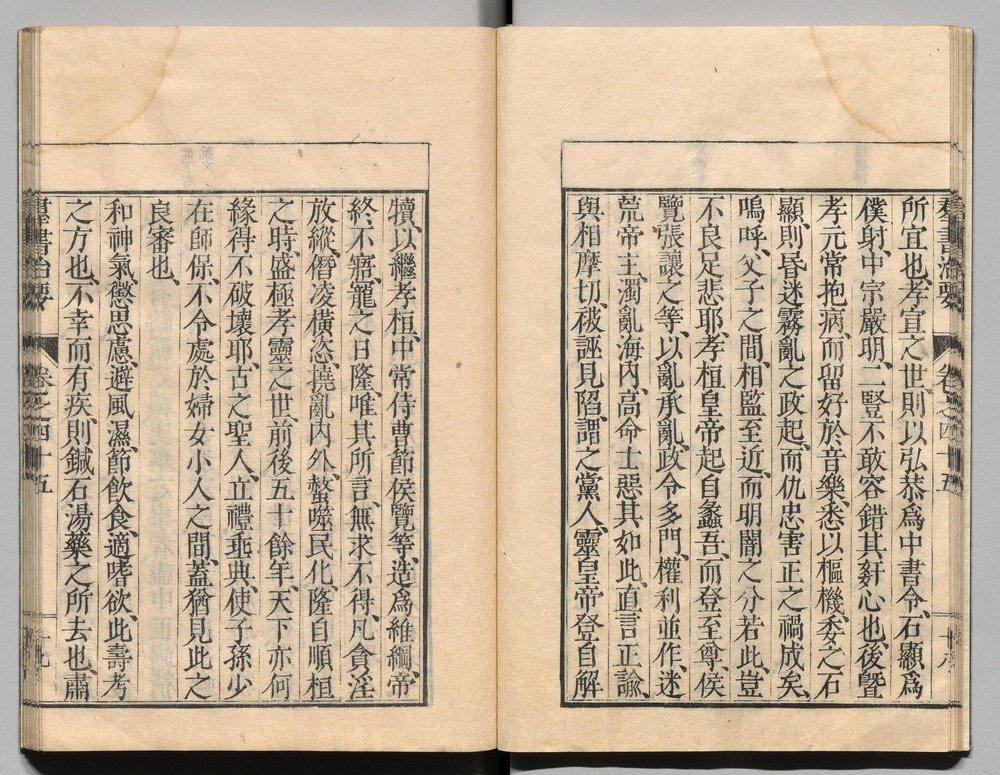 羣書治要 卷之四十五 十八
所宜也、孝宣之世、則以弘恭爲中書令、石顯爲
僕射、中宗嚴明、二豎不敢容錯其姧心也、後曁
孝元常抱病、而留好於音樂、悉以樞機、委之石
顯、則昬迷霧亂之政起、而仇忠害正之禍成矣、
嗚呼、父子之間、相監至近、而明闇之分若此、豈
不良足悲耶、孝桓皇帝起自蠡吾、而登至尊、侯
覽、張讓之等、以亂承亂、政令多門、權利並作、迷
荒帝主、濁亂海內、高命士惡其如此、直言正諭、
與相摩切、被誣見陷、謂之黨人、靈皇帝登自解
犢、以繼孝桓、中常侍曹節侯覽等、造爲維綱、帝
終不寤、寵之日隆、唯其所言、無求不得、凡貪淫
放縱、僭凌橫恣、撓亂內外、螫噬民化、隆自順桓
之時、盛極孝靈之世、前後五十餘年、天下亦何
緣得不破壞耶、古之聖人、立禮垂典、使子孫少
在師保、不令處於婦女小人之間、蓋猶見此之
良審也、
和神氣、懲思慮、避風濕、節飮食、適嗜欲、此壽考
之方也、不幸而有疾、則鍼石湯藥之所去也、肅
羣書治要 卷之四十五 十九